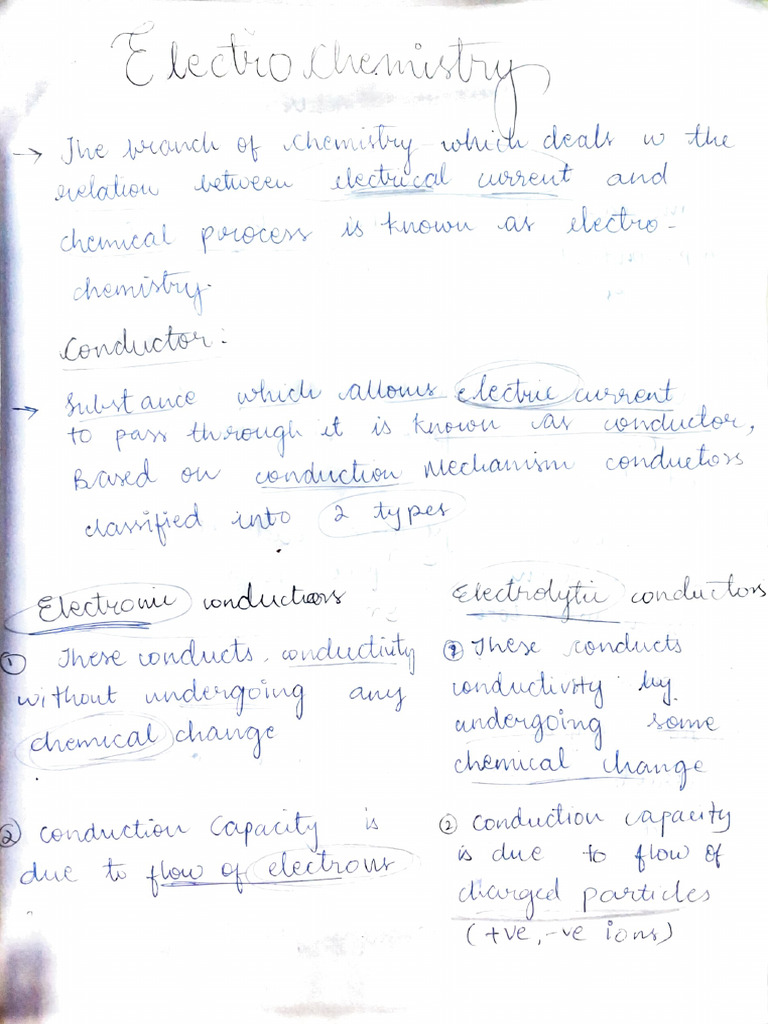 Electro Chemistry
→ The branch of chemistry which deals w the
relation between electrical current and
chemical process is known as electro-
chemistry.
Conductor:
→ Substance which allows electric current
to pass through it is known as conductor,
Based on conduction Mechanism conductors
classified into 2 types
Electronic conductors
① These conducts conductivity
without undergoing any
chemical change
② Conduction Capacity is
due to flow of electrons
Electrolytic conductors
① These conducts
conductivity by
undergoing some
chemical change
② conduction capacity
is due to flow of
charged particles
(+ve, -ve ions)